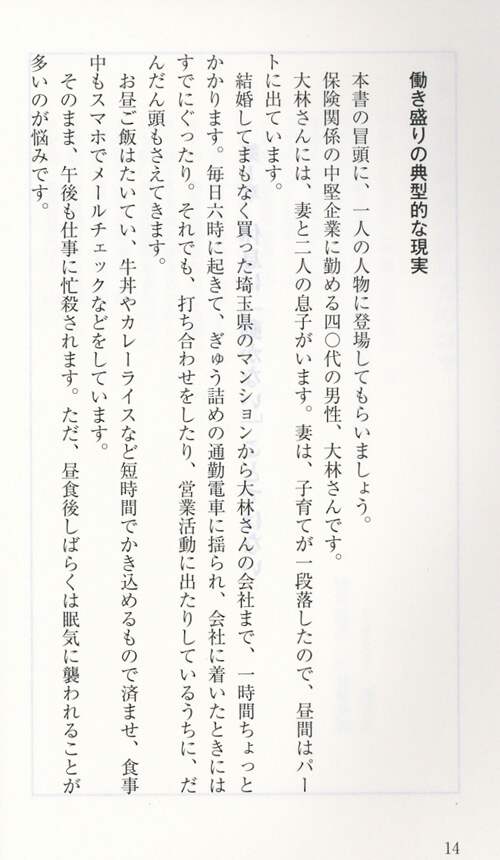 働き盛りの典型的な現実
本書の冒頭に、一人の人物に登場してもらいましょう。
保険関係の中堅企業に勤める四〇代の男性、大林さんです。
大林さんには、妻と二人の息子がいます。妻は、子育てが一段落したので、昼間はパー
トに出ています。
結婚してまもなく買った埼玉県のマンションから大林さんの会社まで、一時間ちょっと
かかります。毎日六時に起きて、ぎゅう詰めの通勤電車に揺られ、会社に着いたときには
すでにぐったり。それでも、打ち合わせをしたり、営業活動に出たりしているうちに、だ
んだん頭もさえてきます。
お昼ご飯はたいてい、牛丼やカレーライスなど短時間でかき込めるもので済ませ、食事
中もスマホでメールチェックなどをしています。
そのまま、午後も仕事に忙殺されます。ただ、昼食後しばらくは眠気に襲われることが
多いのが悩みです。
14